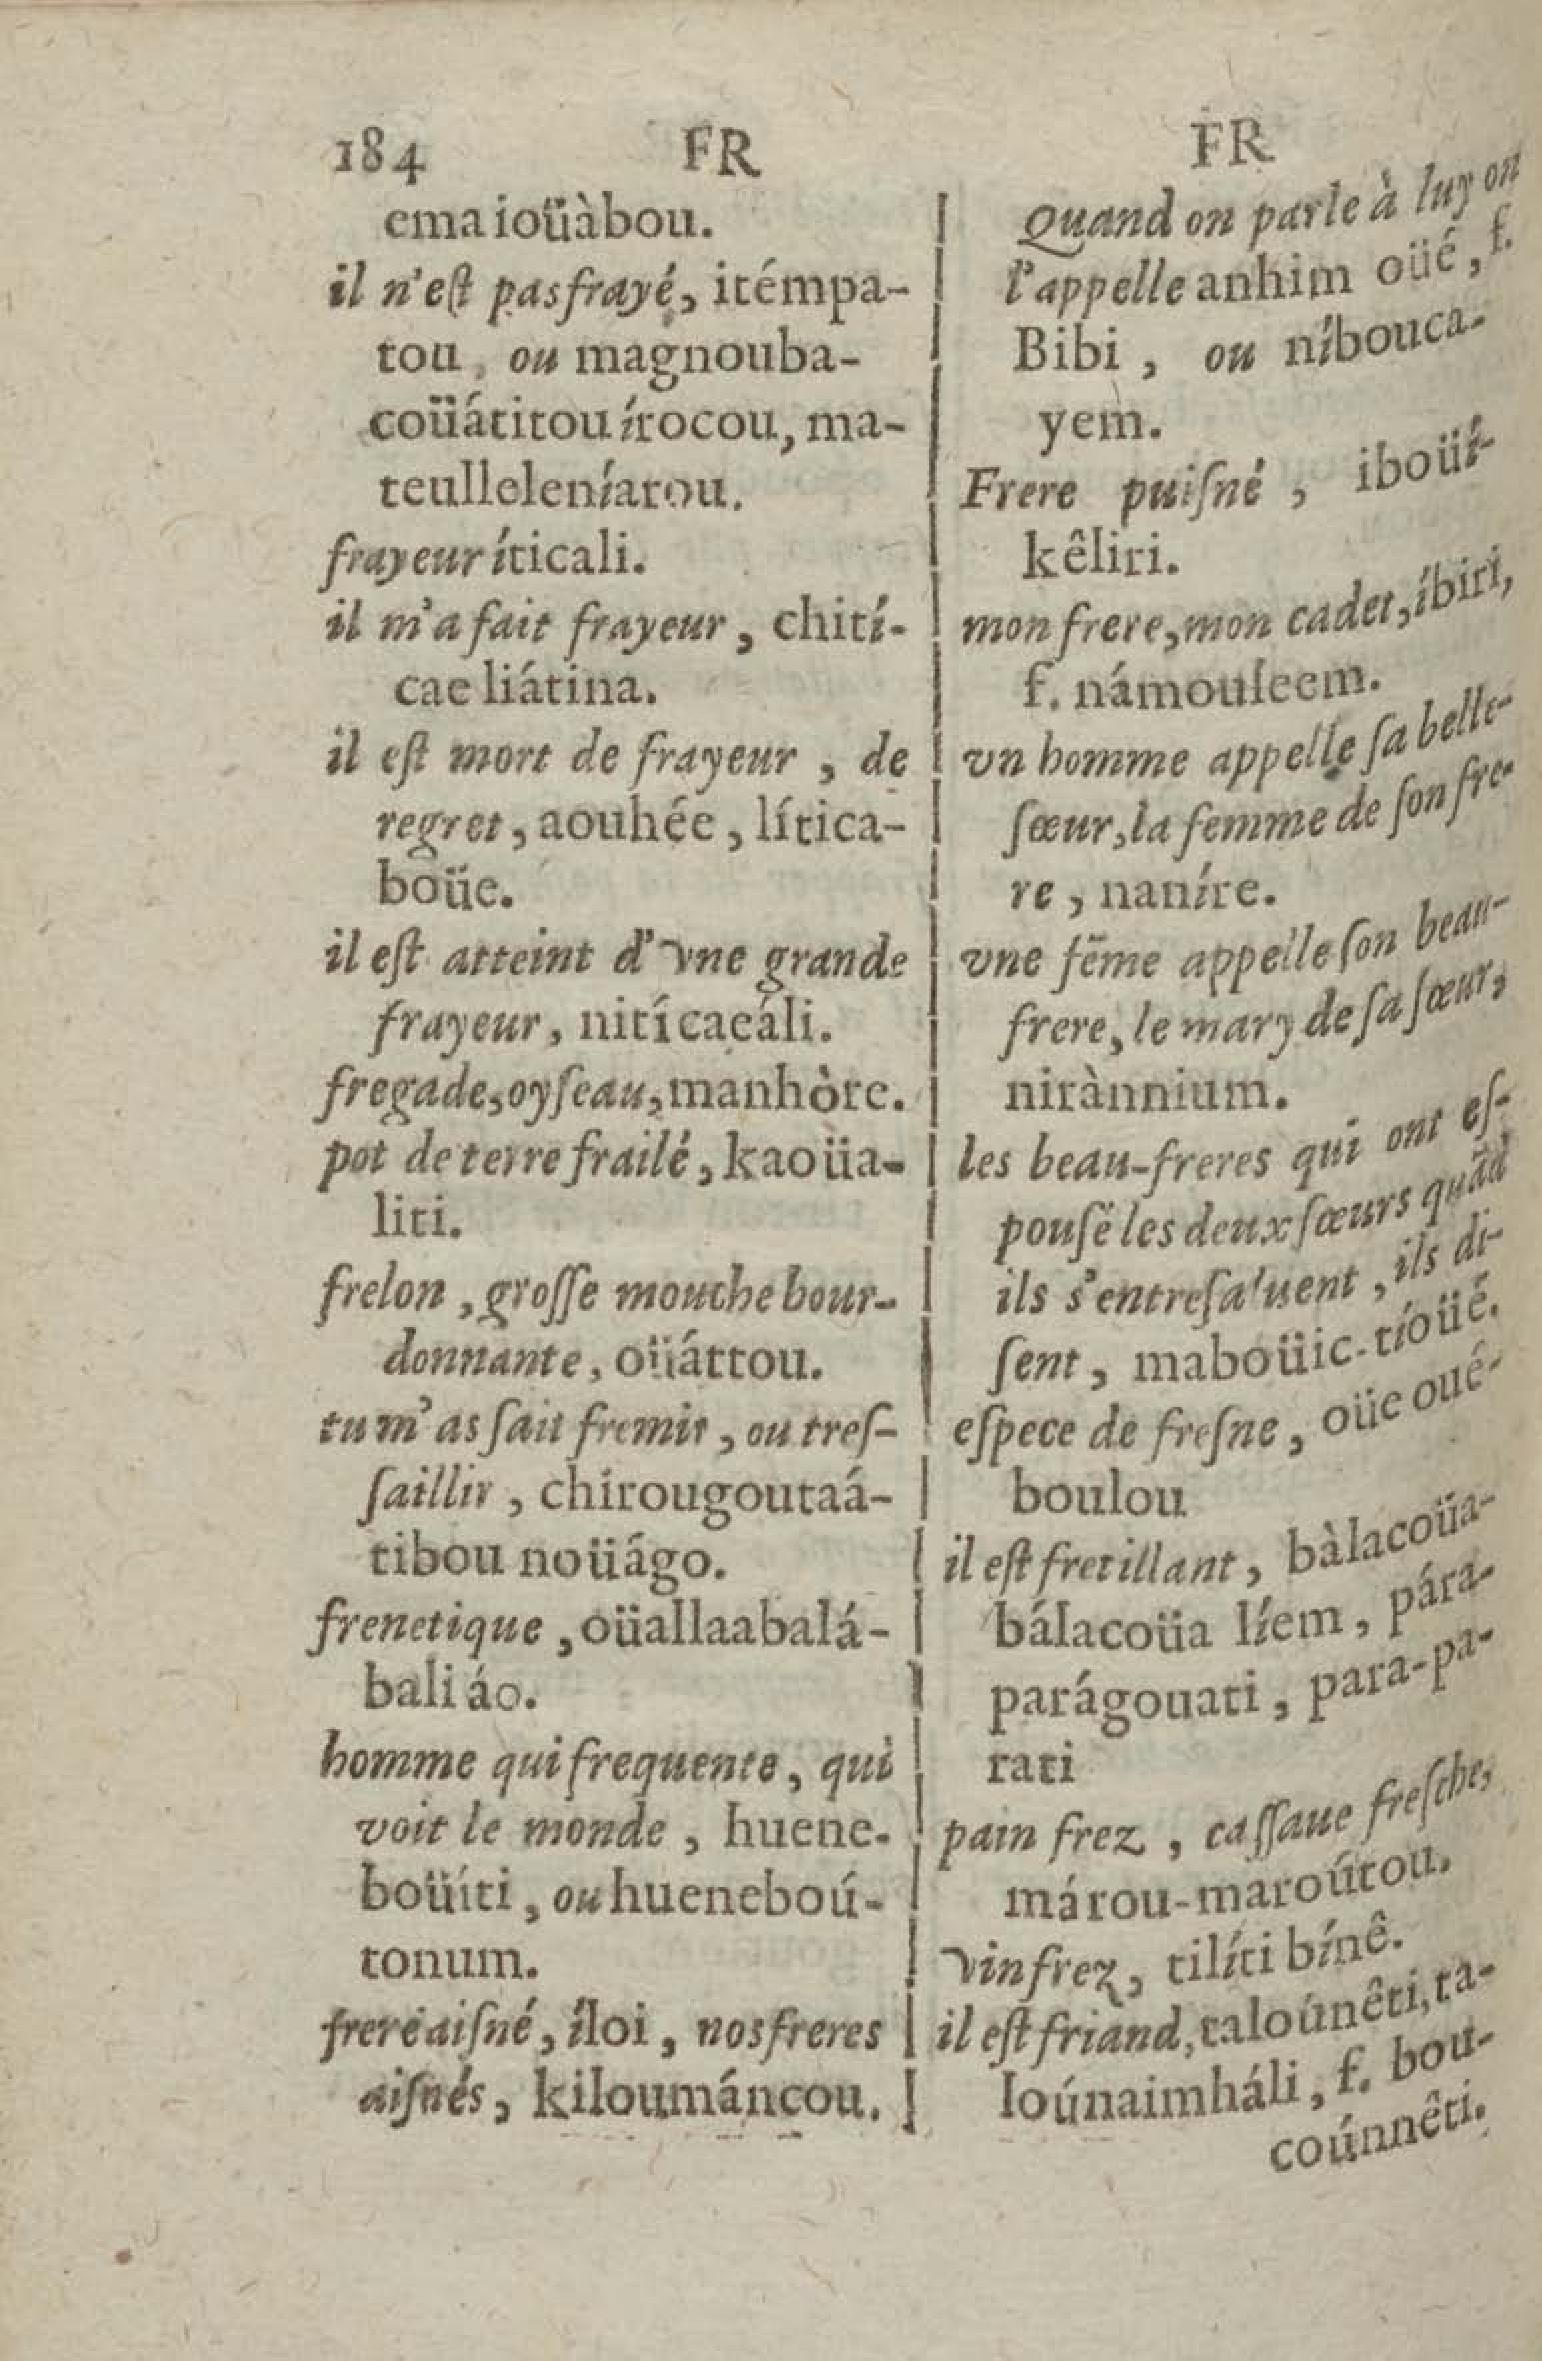 184 FR FR
ema ioüàbou.
il n'eſt pas frayé, itémpa-
tou, ou magnouba-
coüátitou írocou, ma-
teulleleníarou.
frayeur íticali.
il m'a fait frayeur, chití-
cae liátina.
il eſt mort de frayeur, de
regret, aouhée, lítica-
boüe.
il eſt atteint d'vne grande
frayeur, nitícaeáli.
fregade, oyſeau, manhòre.
pot de terre frailé, kaoüa-
liti.
frelon, groſſe mouche bour-
donnante, oüáttou.
tu m'as fait fremir, ou treſ-
ſaillir, chírougoutaá-
tibou noüágo.
frenetique, oüallaabalá-
bali áo.
homme qui frequente, qui
voit le monde, huene-
boüíti, ou hueneboú-
tonum.
frere aiſné, íloi, nos freres
aiſnés, kiloumáncou.
Quand on parle à luy on
l'appelle anhim oüé, f.
Bibi, ou níbouca-
yem.
Frere puiſné, iboüí-
kêliri.
mon frere, mon cadet, íbiri,
f. námouleem.
vn homme appelle ſa belle-
ſœur, la femme de ſon fre-
re, naníre.
vne fẽme appelle ſon beau-
frere, le mary de ſa ſœur,
nirànnium.
les beau-freres qui ont eſ-
pouſé les deux ſœurs quãd
ils s'entreſaluent, ils di-
ſent, maboüic-tíoüé.
eſpece de freſne, oüe oué-
boulou
il eſt fretillant, bàlacoüa-
bálacoüa líem, pára-
parágouati, para-pa-
rati
pain frez, caſſaue freſche,
márou-maroútou.
vin frez, tilíti bínê.
il eſt friand, taloúnêti, ta-
loúnaimháli, f. bou-
coúnnêti.